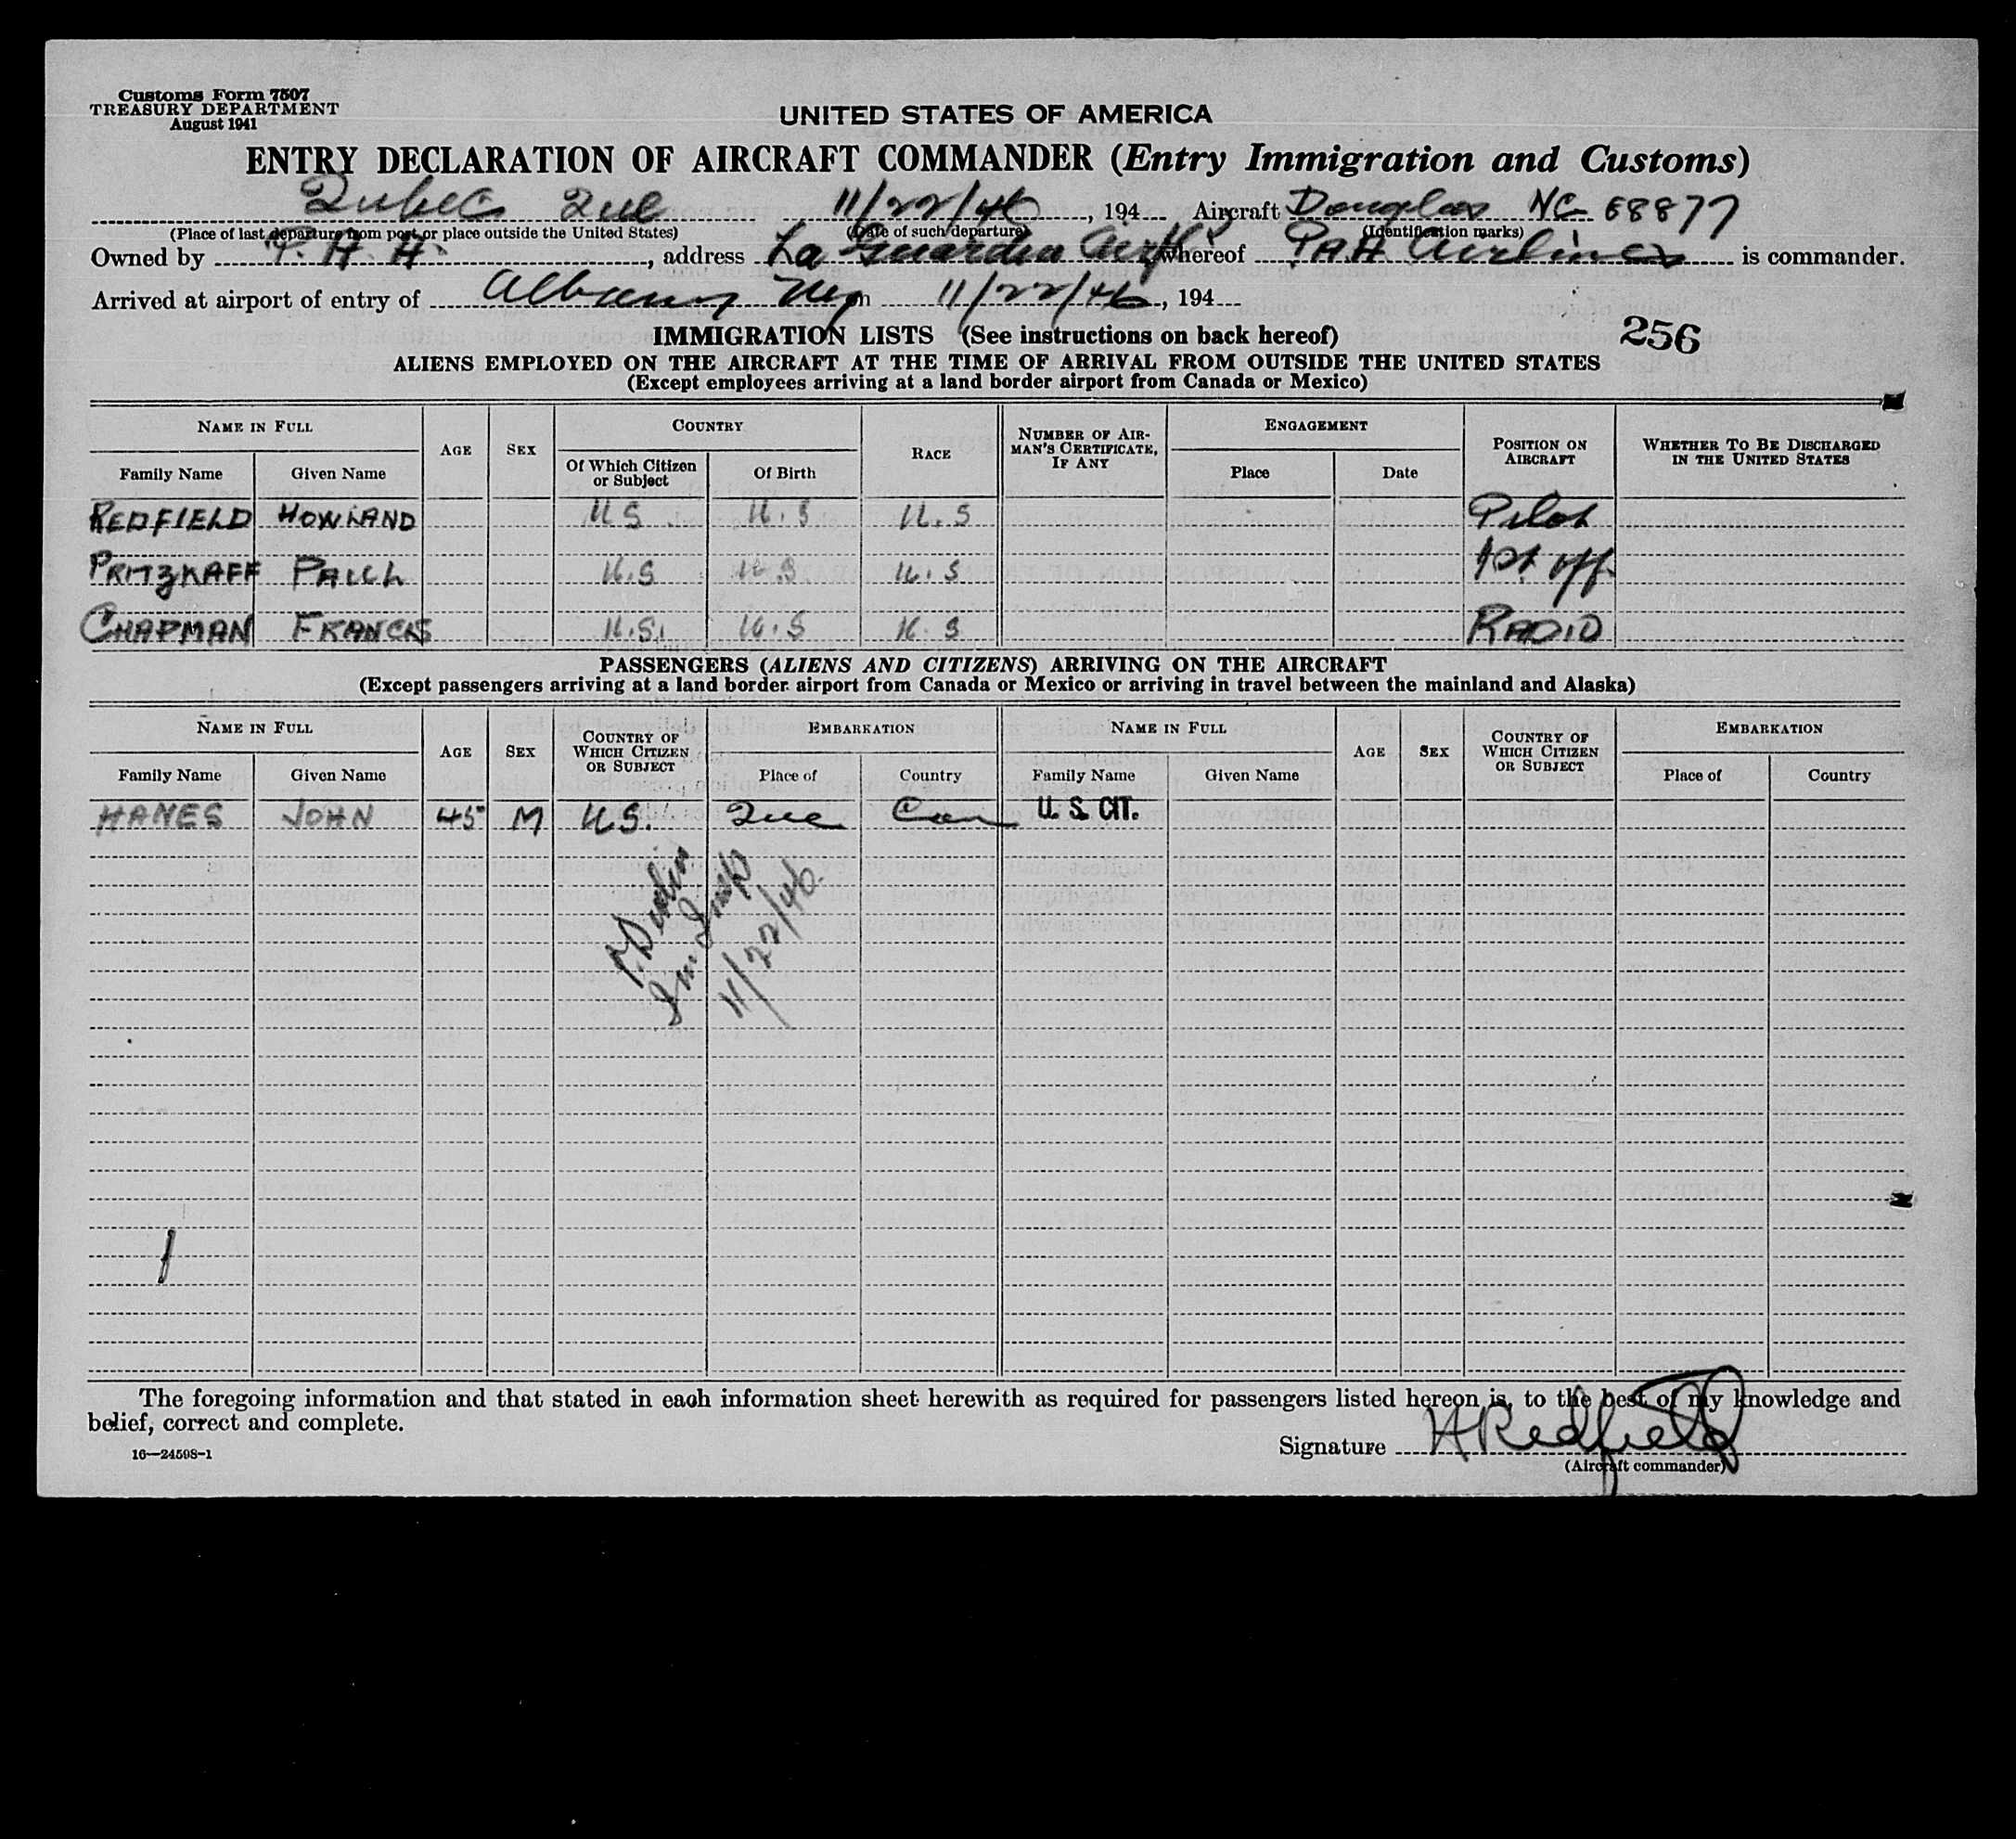 Customs Form 7507
TREASURY DEPARTMENT
August 1941
UNITED STATES OF AMERICA
ENTRY DECLARATION OF AIRCRAFT COMMANDER (Entry Immigration and Customs)
Qubec Que 11/22/46, 194 Aircraft Douglas NC 88877
(Place of last departure from port or place outside the United States) (Date of such departure) (Identification marks)
Owned by P.A.A., address La Guardia whereof PAA Airlines is commander.
Arrived at airport of entry of Albany NY on 11/22/46, 194
IMMIGRATION LISTS (See instructions on back hereof) 256
ALIENS EMPLOYED ON THE AIRCRAFT AT THE TIME OF ARRIVAL FROM OUTSIDE THE UNITED STATES
(Except employees arriving at a land border airport from Canada or Mexico)
NAME IN FULL AGE SEX COUNTRY RACE NUMBER OF AIRMAN'S CERTIFICATE, IF ANY ENGAGEMENT POSITION ON AIRCRAFT WHETHER TO BE DISCHARGED IN THE UNITED STATES
Family Name Given Name Of Which Citizen or Subject Of Birth Place Date
REDFIELD HOWLAND U S U.S U.S Pilot
PRITZKAFF PAUL U.S U.S U.S 1st off
CHAPMAN FRANCIS U.S. U.S U.S RADIO
PASSENGERS (ALIENS AND CITIZENS) ARRIVING ON THE AIRCRAFT
(Except passengers arriving at a land border airport from Canada or Mexico or arriving in travel between the mainland and Alaska)
NAME IN FULL AGE SEX COUNTRY OF WHICH CITIZEN OR SUBJECT EMBARKATION NAME IN FULL AGE SEX COUNTRY OF WHICH CITIZEN OR SUBJECT EMBARKATION
Family Name Given Name Place of Country Family Name Given Name Place of Country
HANES JOHN 45 M U.S. Que Can U. S. CIT.
Imm Insp
11/22/46
The foregoing information and that stated in each information sheet herewith as required for passengers listed hereon is, to the best of my knowledge and
belief, correct and complete.
Signature H Redfield
16—24598-1 (Aircraft commander)